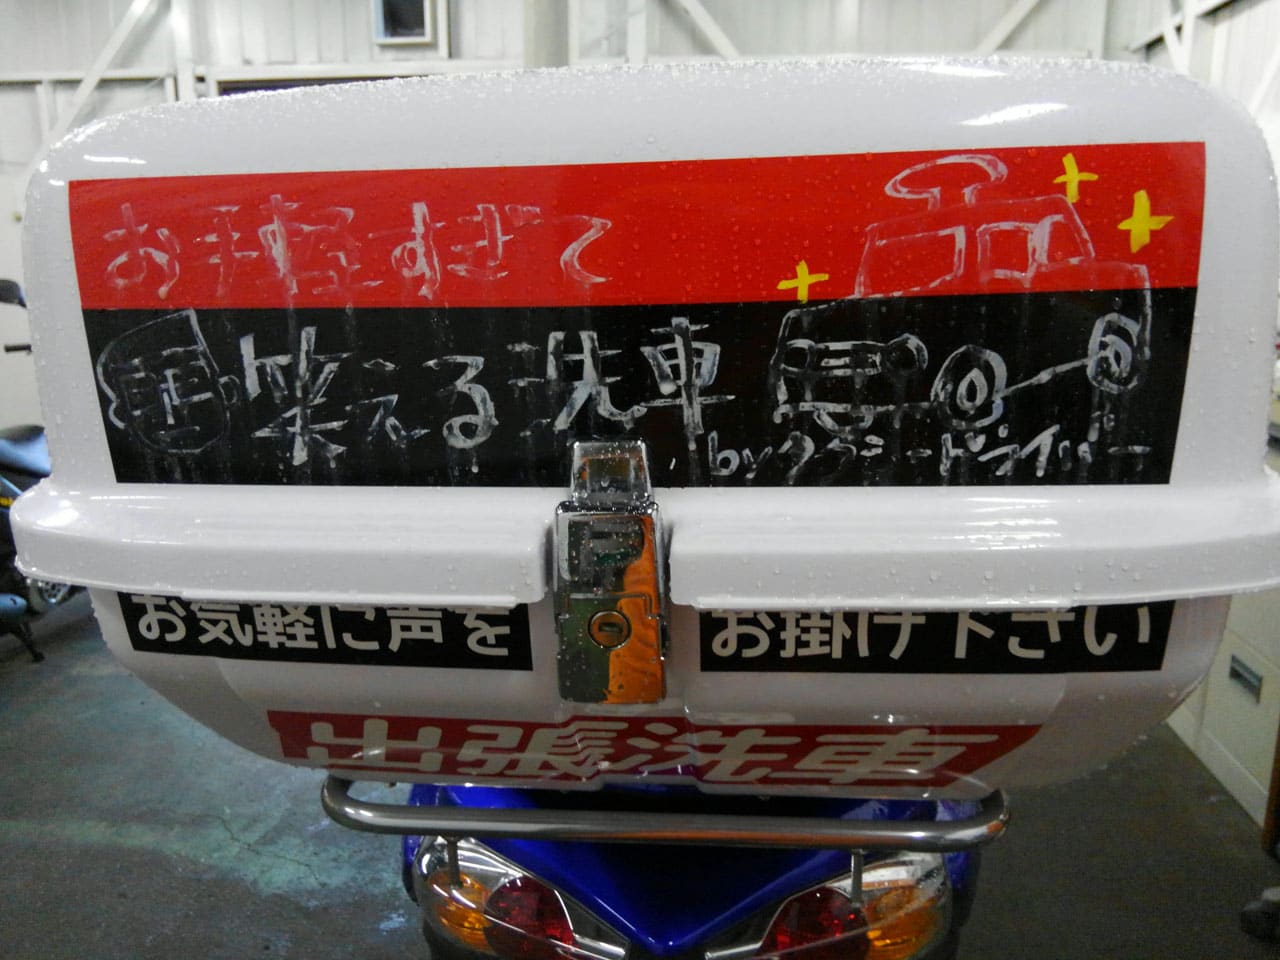 お手軽すぎて
笑える洗車
byタクシードライバー
お気軽に声を お掛け下さい
出張洗車